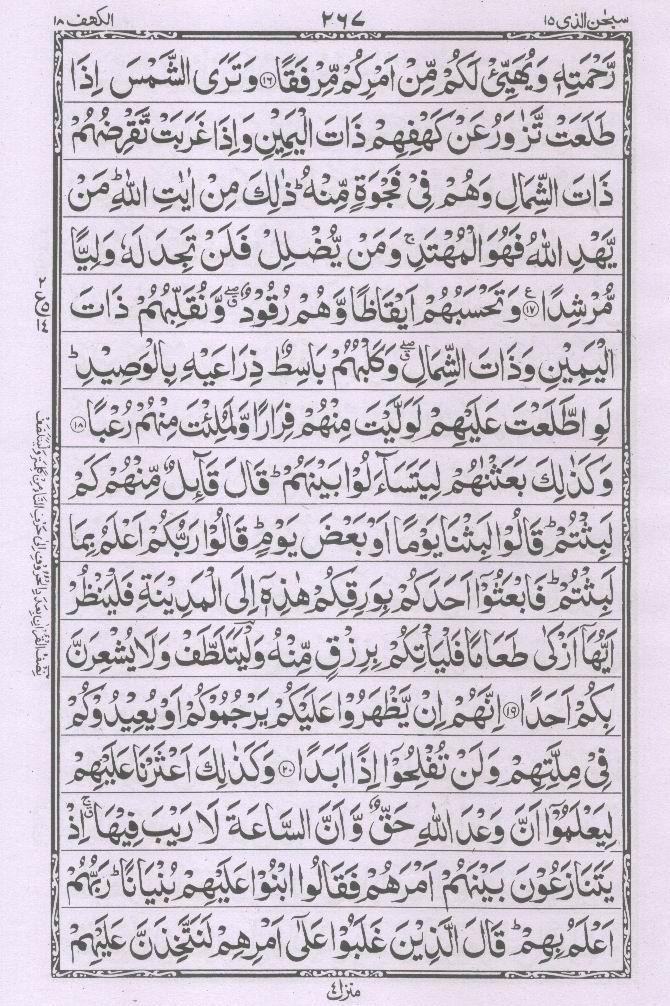 سبحٰن الذی ۱۵
۲۶۷
الکهف ۱۸
رَّحْمَتِهٖ وَیُهَیِّئْ لَكُمْ مِّنْ اَمْرِكُمْ مِّرْفَقًا ۝۱۶ وَتَرَی الشَّمْسَ اِذَا
طَلَعَتْ تَّزٰوَرُ عَنْ كَهْفِهِمْ ذَاتَ الْیَمِیْنِ وَاِذَا غَرَبَتْ تَّقْرِضُهُمْ
ذَاتَ الشِّمَالِ وَهُمْ فِیْ فَجْوَةٍ مِّنْهُ ؕ ذٰلِكَ مِنْ اٰیٰتِ اللّٰهِ ؕ مَنْ
یَّهْدِ اللّٰهُ فَهُوَ الْمُهْتَدِ ۚ وَمَنْ یُّضْلِلْ فَلَنْ تَجِدَ لَهٗ وَلِیًّا
مُّرْشِدًا ۝۱۷ وَتَحْسَبُهُمْ اَیْقَاظًا وَّهُمْ رُقُوْدٌ ۖۗ وَّنُقَلِّبُهُمْ ذَاتَ
الْیَمِیْنِ وَذَاتَ الشِّمَالِ ۖۗ وَكَلْبُهُمْ بَاسِطٌ ذِرَاعَیْهِ بِالْوَصِیْدِ ؕ
لَوِ اطَّلَعْتَ عَلَیْهِمْ لَوَلَّیْتَ مِنْهُمْ فِرَارًا وَّلَمُلِئْتَ مِنْهُمْ رُعْبًا ۝۱۸
وَكَذٰلِكَ بَعَثْنٰهُمْ لِیَتَسَآءَلُوْا بَیْنَهُمْ ؕ قَالَ قَآئِلٌ مِّنْهُمْ كَمْ
لَبِثْتُمْ ؕ قَالُوْا لَبِثْنَا یَوْمًا اَوْ بَعْضَ یَوْمٍ ؕ قَالُوْا رَبُّكُمْ اَعْلَمُ بِمَا
لَبِثْتُمْ ؕ فَابْعَثُوْۤا اَحَدَكُمْ بِوَرِقِكُمْ هٰذِهٖۤ اِلَی الْمَدِیْنَةِ فَلْیَنْظُرْ
اَیُّهَاۤ اَزْكٰی طَعَامًا فَلْیَاْتِكُمْ بِرِزْقٍ مِّنْهُ وَلْیَتَلَطَّفْ وَلَا یُشْعِرَنَّ
بِكُمْ اَحَدًا ۝۱۹ اِنَّهُمْ اِنْ یَّظْهَرُوْا عَلَیْكُمْ یَرْجُمُوْكُمْ اَوْ یُعِیْدُوْكُمْ
فِیْ مِلَّتِهِمْ وَلَنْ تُفْلِحُوْۤا اِذًا اَبَدًا ۝۲۰ وَكَذٰلِكَ اَعْثَرْنَا عَلَیْهِمْ
لِیَعْلَمُوْۤا اَنَّ وَعْدَ اللّٰهِ حَقٌّ وَّاَنَّ السَّاعَةَ لَا رَیْبَ فِیْهَا ۚ اِذْ
یَتَنَازَعُوْنَ بَیْنَهُمْ اَمْرَهُمْ فَقَالُوا ابْنُوْا عَلَیْهِمْ بُنْیَانًا ؕ رَبُّهُمْ
اَعْلَمُ بِهِمْ ؕ قَالَ الَّذِیْنَ غَلَبُوْا عَلٰۤی اَمْرِهِمْ لَنَتَّخِذَنَّ عَلَیْهِمْ
منزل ۴